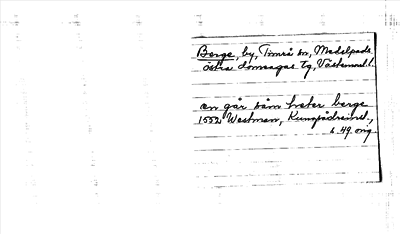 Berge, by, Timrå sn, Medelpads
östra domsagas tg, Västernorrl.
en går såm heter berge
1552 Westman, Kungsådreinst.,
s. 49. orig